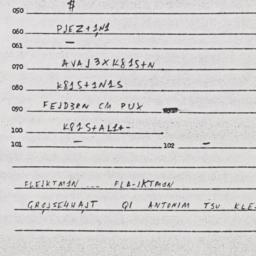 050 #
060 PJEZ+1N1
061 —
070 AVAJ3XK81S+N
080 K81S+1N1S
090 FEJD3RN CM PUX
100 K81S+AL1+-
101 — 102 —
FLEJKTM1N ... FLA-JKTM1N
QI ANTONIM TSU KLE